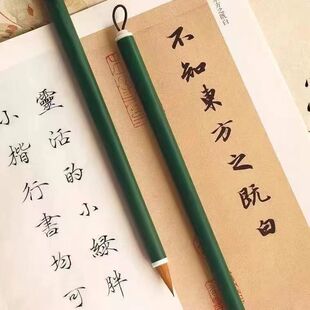 方之既白
不知東方之既白
靈活的小綠胖
小楷行書均可